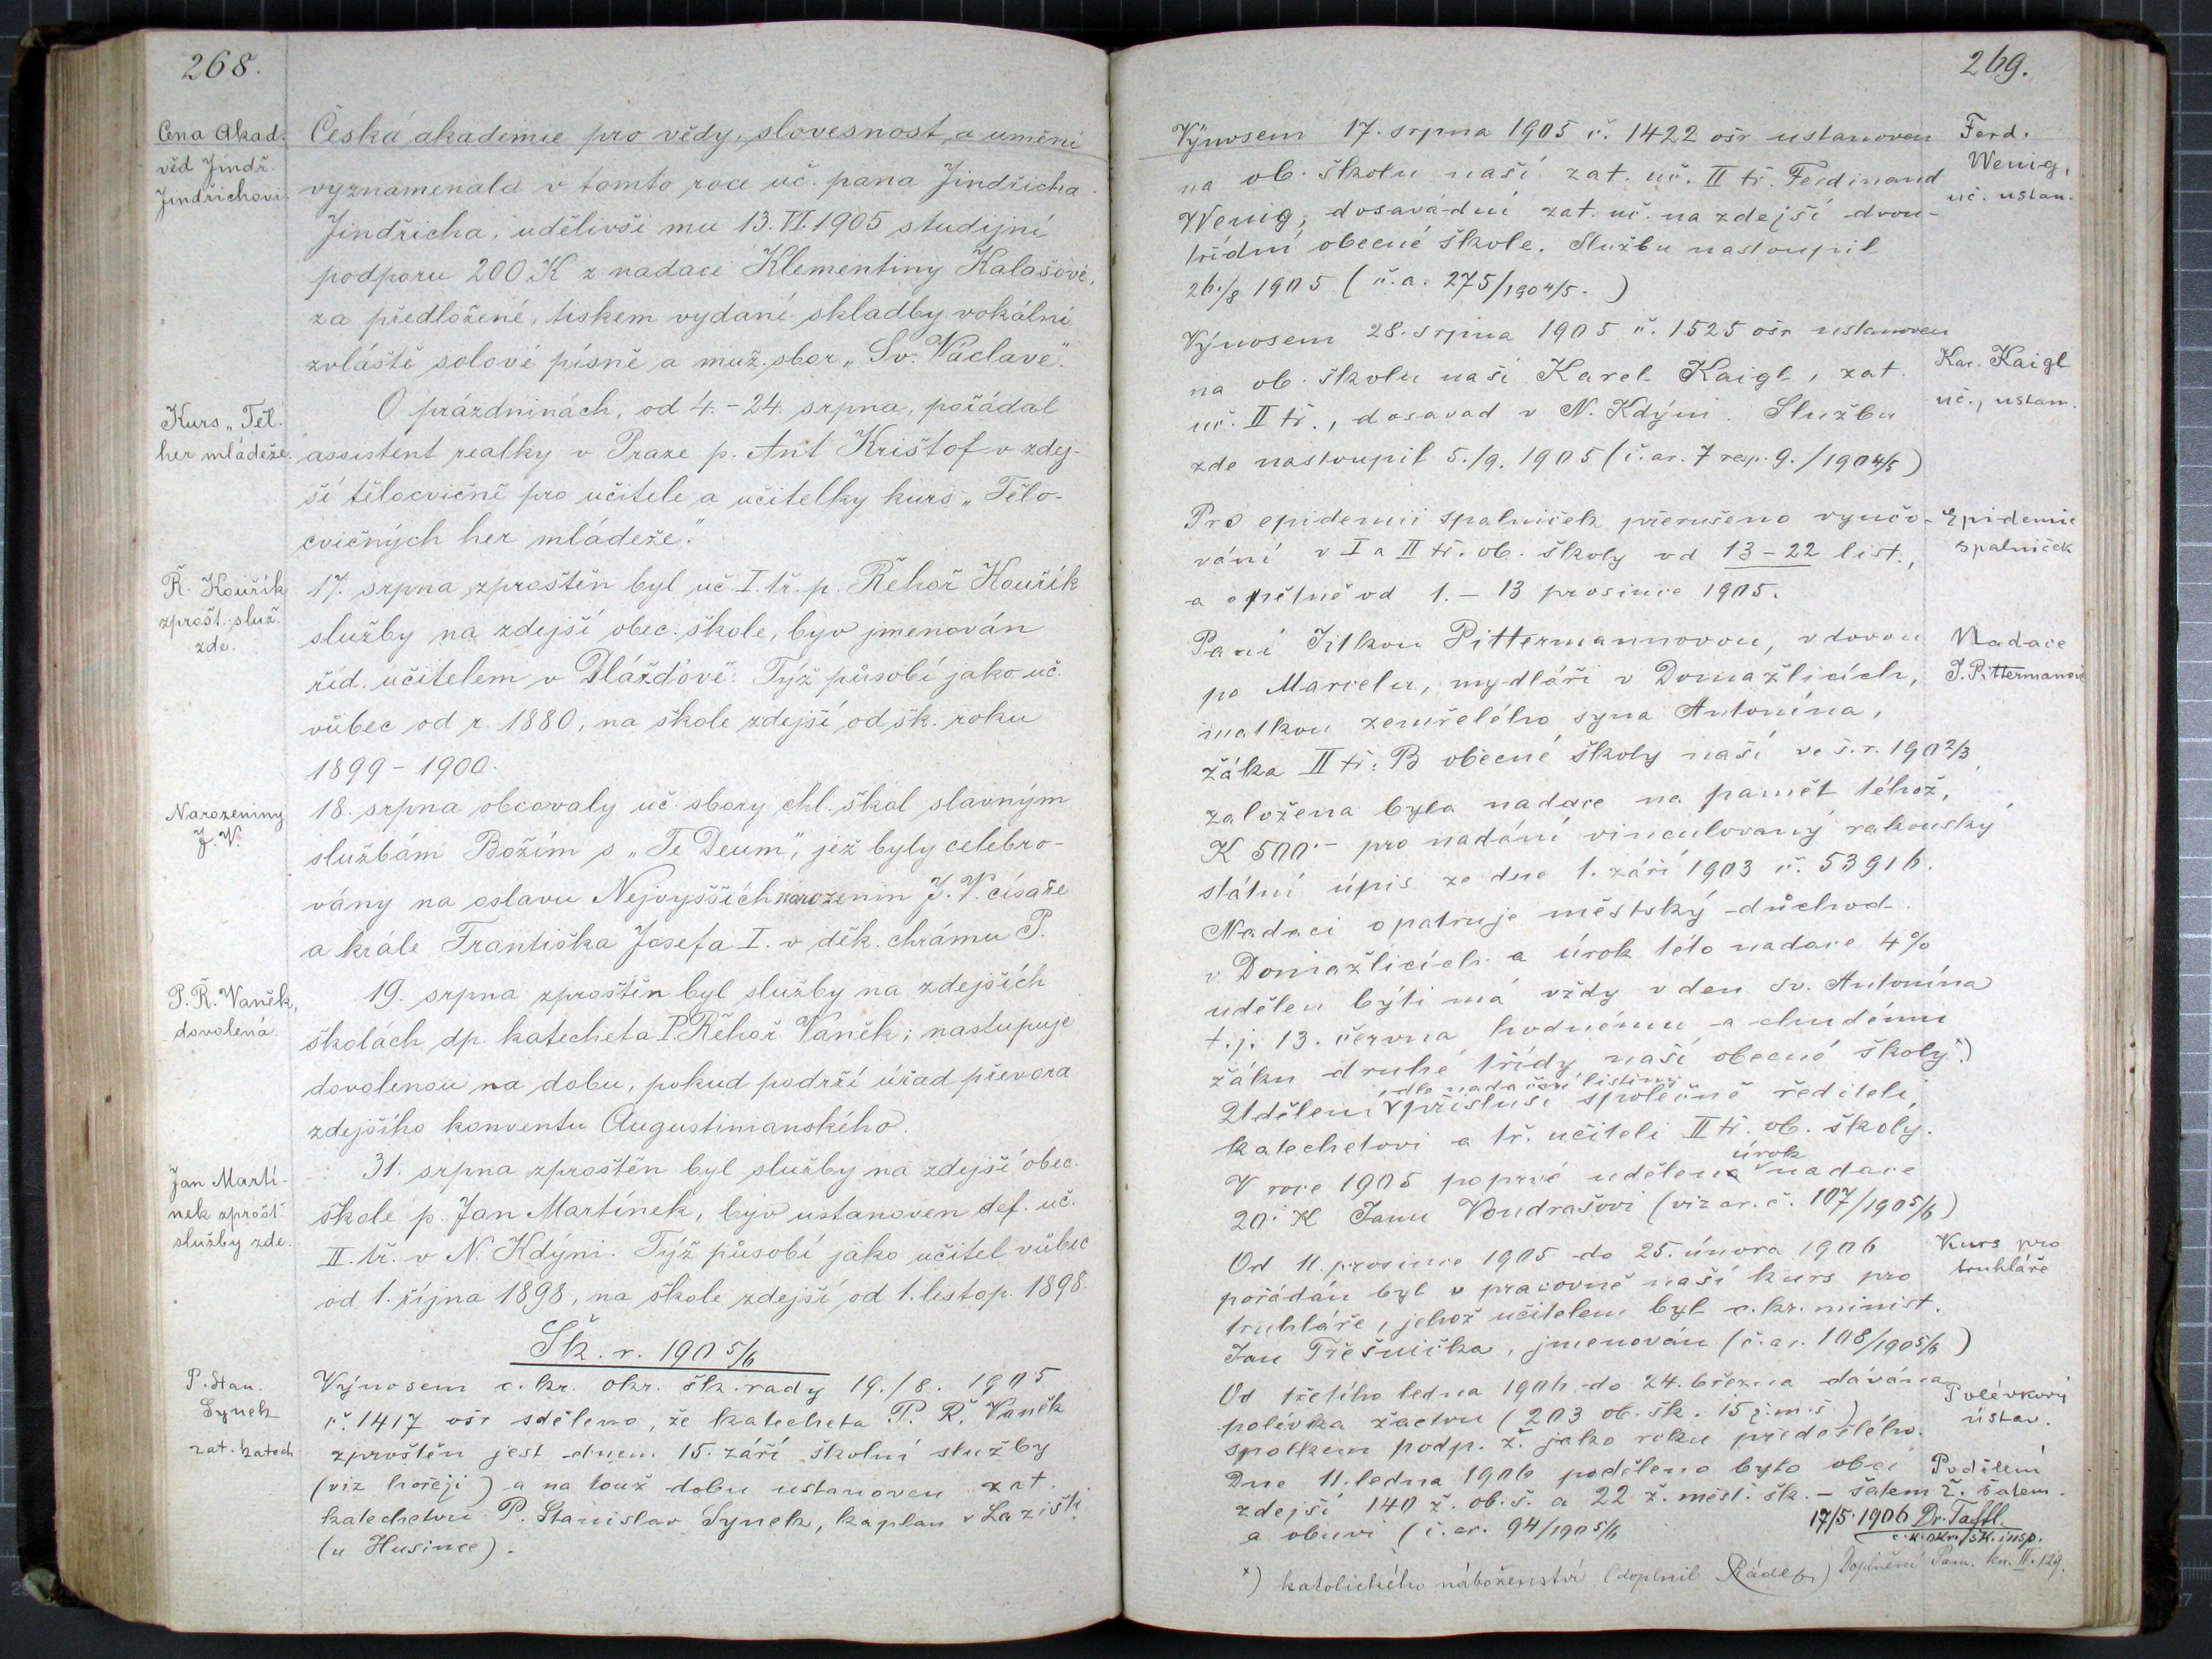 268.
Cena Akad.
věd Jindř.
Jindřichovi.
Česká akademie pro vědy, slovesnost, a umění
vyznamenala v tomto roce uč. pana Jindřicha
Jindřicha, udělivši mu 13. VI. 1905 studijní
podporu 200 K z nadace Klementiny Kalašové,
za předložené, tiskem vydané skladby vokální
zvláště solové písně a muž. sbor „Sv. Václave“.
Kurs „Těl.
her mládeže.
O prázdninách, od 4. - 24. srpna, pořádal
assistent realky v Praze p. Ant Krištof v zdej-
ší tělocvičně pro učitele a učitelky kurs „Tělo-
cvičných her mládeže.“
Ř. Kouřík
zprošt. služ.
zde.
17. srpna zproštěn byl uč. I. tř. p. Řehoř Kouřík
služby na zdejší obec. škole, byv jmenován
říd. učitelem v Dlážďově. Týž působí jako uč.
vůbec od r. 1880, na škole zdejší od šk. roku
1899 - 1900.
Narozeniny
J. V.
18. srpna obcovaly uč. sbory chl. škol slavným
službám Božím s „Te Deum“, jež byly celebro-
vány na oslavu Nejvyšších narozenin J. V. císaře
a krále Františka Josefa I. v děk. chrámu P.
P. Ř. Vaněk,
dovolená.
19. srpna zproštěn byl služby na zdejších
školách dp. katecheta P. Řehoř Vaněk; nastupuje
dovolenou na dobu, pokud podrží úřad převora
zdejšího konventu Augustinianského.
Jan Martí-
nek zprošt.
služby zde.
31. srpna zproštěn byl služby na zdejší obec.
škole p. Jan Martínek, byv ustanoven def. uč.
II. tř. v N. Kdýni. Týž působí jako učitel vůbec
od 1. října 1898, na škole zdejší od 1. listop. 1898.
Šk. r. 1905/6
P. Stan.
Synek
zat. katech
Výnosem c. kr. okr. šk. rady 19./8. 1905
č. 1417 ošr sděleno, že katecheta P. Ř. Vaněk
zproštěn jest dnem 15. září školní služby
(viz hořeji) a na touž dobu ustanoven zat.
katechetou P. Stanislav Synek, kaplan v Lazišt.
(u Husince).
269.
Výnosem 17. srpna 1905 č. 1422 ošr ustanoven
na ob. školu naší zat. uč. II tř. Ferdinand
Wenig, dosavádní zat. uč. na zdejší dvou-
třídní obecné škole. Službu nastoupil
26./8 1905 (č. a. 275/1904/5.)
Ferd.
Wenig,
uč. ustan.
Výnosem 28. srpna 1905 č. 1525 ošr ustanoven
na ob. školu naši Karel Kaigl, zat.
uč. II tř., dosavad v N. Kdýni. Službu
zde nastoupil 5./9. 1905 (č. ar. 7 resp. 9./1904/5)
Kar. Kaigl
uč., ustan.
Pro epidemii spalniček přerušeno vyučo-
vání v I a II tř. ob. školy od 13 - 22 list.,
a opětně od 1. - 13 prosince 1905.
Epidemie
spalniček
Paní Jitkou Pittermannovou, vdovou
po Marcelu, mydláři v Domažlicích,
matkou zemřelého syna Antonína,
žáka II tř. B obecné školy naší ve š. r. 1902/3,
založena byla nadace na paměť téhož,
K 500.- pro nadání vinculovaný rakouský
státní úpis ze dne 1. září 1903 č. 53916.
Nadaci opatruje městský důchod
v Domažlicích a úrok této nadace 4%
udělen býti má vždy v den sv. Antonína
t. j. 13. června hodnému a chudému
žáku druhé třídy naší obecné školy x)
dle nadační listiny
Udělení přísluší společně řediteli,
katechetovi a tř. učiteli II tř. ob. školy.
úrok
V roce 1905 poprvé udělena nadace
20. K Janu Vondrašovi (viz ar. č. 107/1905/6)
Nadace
J. Pittermanové
Od 11. prosince 1905 do 25. února 1906
pořádán byl v pracovně naší kurs pro
truhláře, jehož učitelem byl c. kr. minist.
Jan Třešnička, jmenován (č. ar. 108/1905/6)
Kurs pro
truhláře
Od třetího ledna 1906 do 24. března dávána
polévka žactvu (203 ob. šk. 15 j. m. š.)
spolkem podp. ž. jako roku předešlého.
Polévkový
ústav.
Dne 11. ledna 1906 poděleno bylo obcí
zdejší 140 ž. ob. š. a 22 ž. měšť. šk. - šatem
a obuvi (č. ar. 94/1905/6
Podělení
ž. šatem.
17/5. 1906 Dr.
c. k. okr. šk. insp.
x) katolického náboženství (doplnil Rádl) Doplnění Pam. kn. II. 129.